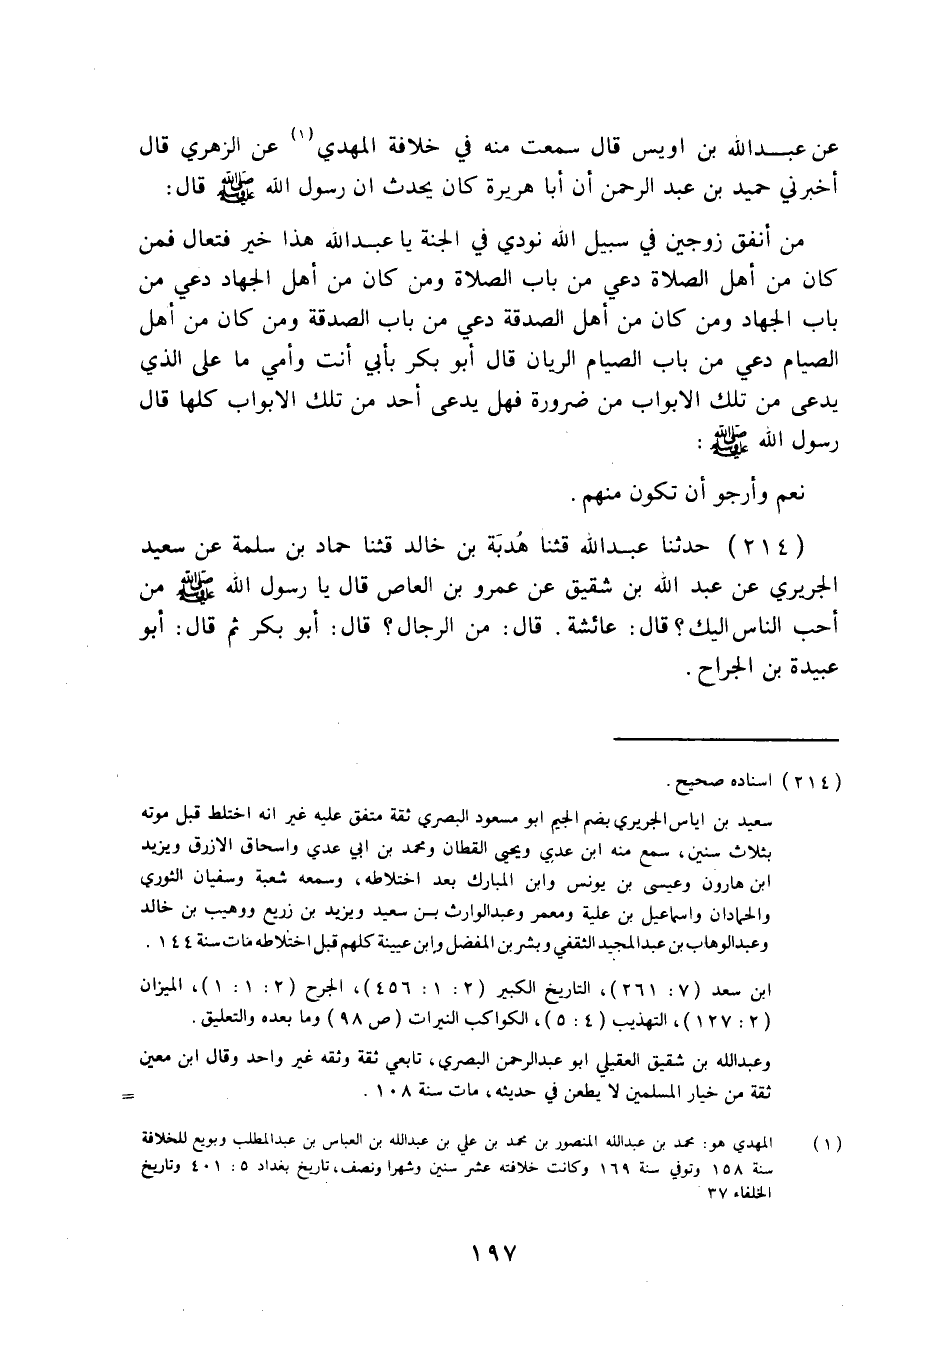 عن عبـــدالله بن اويس قال سمعت منه في خلافة المهدي(١) عن الزهري قال
أخبرني حميد بن عبد الرحمن أن أبا هريرة كان يحدث ان رسول الله ﷺ قال:
من أنفق زوجين في سبيل الله نودي في الجنة يا عبـدالله هذا خير فتعال فمن
كان من أهل الصلاة دعي من باب الصلاة ومن كان من أهل الجهاد دعي من
باب الجهاد ومن كان من أهل الصدقة دعي من باب الصدقة ومن كان من أهل
الصيام دعي من باب الصيام الريان قال أبو بكر بأبي أنت وأمي ما على الذي
يدعى من تلك الابواب من ضرورة فهل يدعى أحد من تلك الابواب كلها قال
رسول الله ﷺ :
نعم وأرجو أن تكون منهم .
(٢١٤) حدثنا عبـدالله قثنا هُدبَة بن خالد قثنا حماد بن سلمة عن سعيد
الجريري عن عبد الله بن شقيق عن عمرو بن العاص قال يا رسول الله ﷺ من
أحب الناس اليك؟ قال: عائشة . قال: من الرجال؟ قال: أبو بكر ثم قال: أبو
عبيدة بن الجراح .
(٢١٤) اسناده صحيح .
سعيد بن اياس الجريري بضم الجيم ابو مسعود البصري ثقة متفق عليه غير انه اختلط قبل موته
بثلاث سنين، سمع منه ابن عدي ويحيى القطان ومحمد بن ابي عدي واسحاق الازرق ويزيد
ابن هارون وعيسى بن يونس وابن المبارك بعد اختلاطه، وسمعه شعبة وسفيان الثوري
والحمادان واسماعيل بن علية ومعمر وعبدالوارث بـن سعيد ويزيد بن زريع ووهيب بن خالد
وعبدالوهاب بن عبدالمجيد الثقفي وبشر بن المفضل وابن عيينة كلهم قبل اختلاطه مات سنة ١٤٤ .
ابن سعد (٧: ٢٦١)، التاريخ الكبير (٢: ١: ٤٥٦)، الجرح (٢: ١: ١)، الميزان
(٢: ١٢٧)، التهذيب (٤: ٥)، الكواكب النيرات (ص ٩٨) وما بعده والتعليق .
وعبدالله بن شقيق العقيلي ابو عبدالرحمن البصري، تابعي ثقة وثقه غير واحد وقال ابن معين
ثقة من خيار المسلمين لا يطعن في حديثه، مات سنة ١٠٨ . =
(١) المهدي هو: محمد بن عبدالله المنصور بن محمد بن علي بن عبدالله بن العباس بن عبدالمطلب وبويع للخلافة
سنة ١٥٨ وتوفي سنة ١٦٩ وكانت خلافته عشر سنين وشهرا ونصف، تاريخ بغداد ٥: ٤٠١ وتاريخ
الخلفاء ٣٧
١٩٧